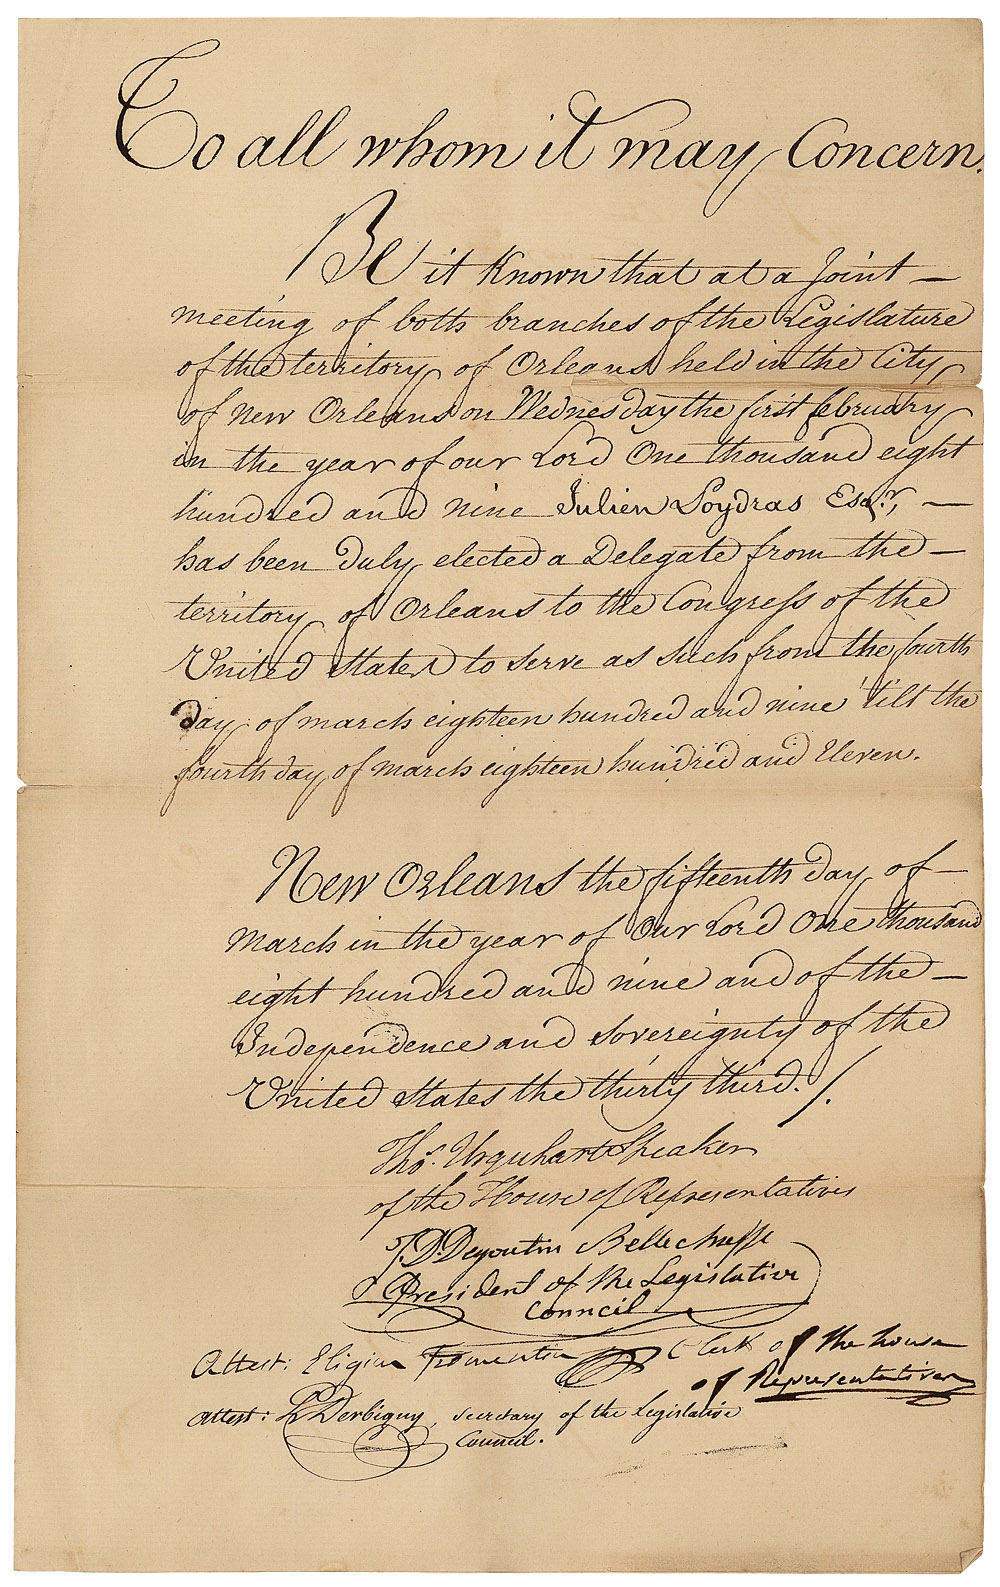 To all whom it may Concern.
Be it Known that at a Joint —
meeting of both branches of the Legislature
of the territory of Orleans held in the City
of New Orleans on Wednesday the first february
in the year of our Lord One thousand eight
hundred and nine Julien Poydras Esqr, —
has been duly elected a Delegate from the —
territory of Orleans to the Congress of the
United States to serve as such from the fourth
day of march eighteen hundred and nine 'till the
fourth day of march eighteen hundred and Eleven.
New Orleans the fifteenth day of —
March in the year of Our Lord One thousand
eight hundred and nine and of the —
Independence and Sovereignty of the
United States the thirty third. /.
Thos. Urquhart Speaker
of the House of Representatives
J. D. Degoutin Bellechasse
President of the Legislative
Council
Attest: Eligius Fromentin Clerk of the house
of Representatives
Attest: P. Derbigny, Secretary of the Legislative
Council.